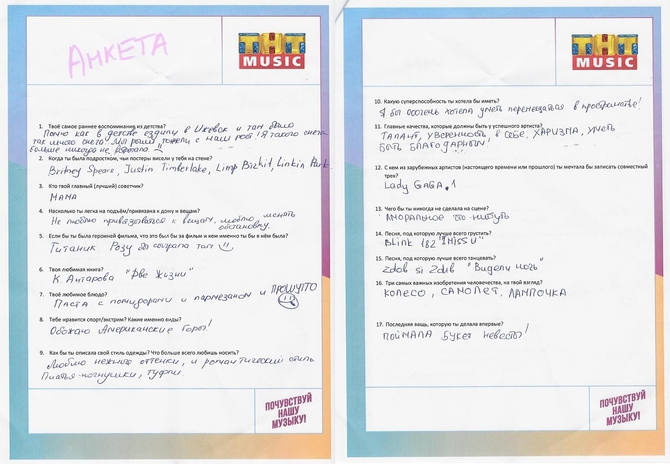 АНКЕТА
ТНТ
MUSIC
1. Твоё самое раннее воспоминание из детства?
Помню как в детстве ездили в Ижевск и там было
так много снега. Мы рыли тоннели с наш рост! Я такого снега
больше никогда не видела.
2. Когда ты была подростком, чьи постеры висели у тебя на стене?
Britney Spears, Justin Timberlake, Limp Bizkit, Linkin Park
3. Кто твой главный (лучший) советчик?
МАМА
4. Насколько ты легка на подъём/привязана к дому и вещам?
Не люблю привязываться к вещам, люблю менять
обстановку.
5. Если бы ты была героиней фильма, что это был бы за фильм и кем именно ты бы в нём была?
Титаник. Розу бы сыграла там
6. Твоя любимая книга?
К. Антарова "Две жизни"
7. Твоё любимое блюдо?
Паста с помидорами и пармезаном и ПРОШУТТО
8. Тебе нравится спорт/экстрим? Какие именно виды?
Обожаю Американские Горы!
9. Как бы ты описала свой стиль одежды? Что больше всего любишь носить?
Люблю нежные оттенки, и романтический стиль
Платья-ночнушки, туфли.
ПОЧУВСТВУЙ
НАШУ
МУЗЫКУ!
ТНТ
MUSIC
10. Какую суперспособность ты хотела бы иметь?
Я бы очень хотела уметь перемещаться в пространстве!
11. Главные качества, которые должны быть у успешного артиста?
ТАЛАНТ, УВЕРЕННОСТЬ В СЕБЕ, ХАРИЗМА, УМЕТЬ
БЫТЬ БЛАГОДАРНЫМ!
12. С кем из зарубежных артистов (настоящего времени или прошлого) ты мечтала бы записать совместный
трек?
Lady GAGA!
13. Чего бы ты никогда не сделала на сцене?
Аморальное что-нибудь
14. Песня, под которую лучше всего грустить?
Blink 182 "I MISS U"
15. Песня, под которую лучше всего танцевать?
Zdob si Zdub "Видели ночь"
16. Три самых важных изобретения человечества, на твой взгляд?
КОЛЕСО, САМОЛЕТ, ЛАМПОЧКА
17. Последняя вещь, которую ты делала впервые?
ПОЙМАЛА БУКЕТ НЕВЕСТЫ!
ПОЧУВСТВУЙ
НАШУ
МУЗЫКУ!